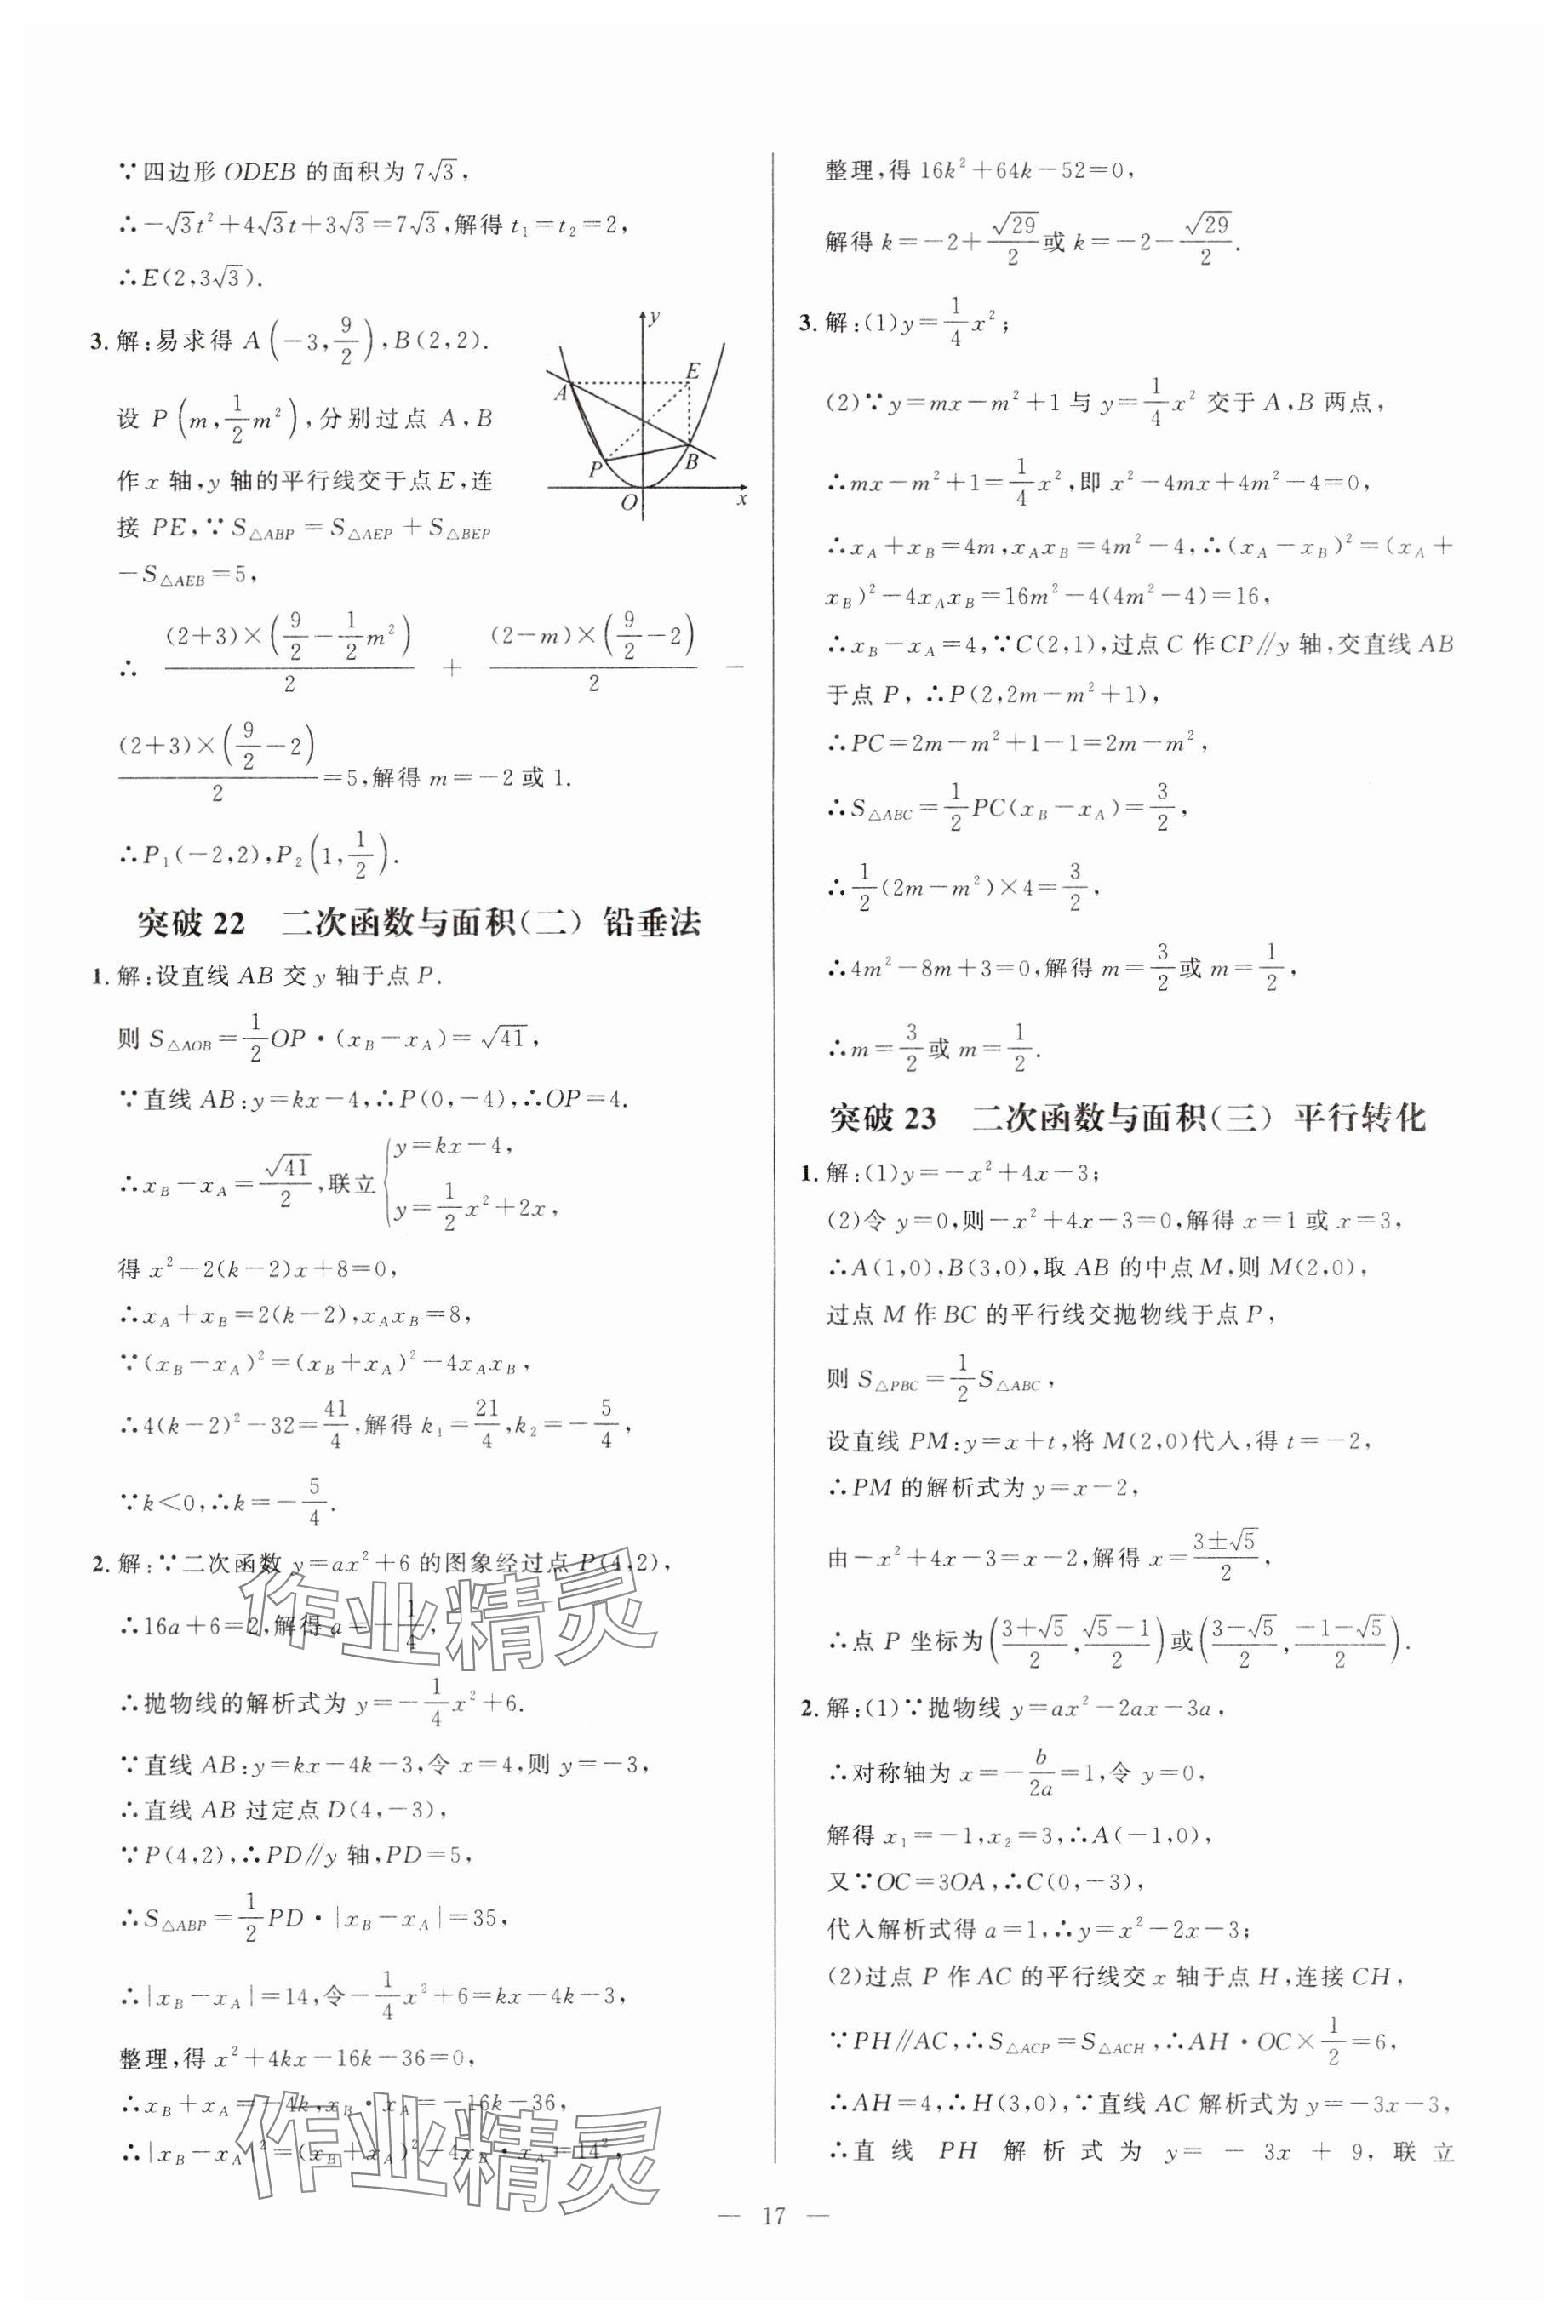 ∵四边形 ODEB 的面积为 7√3,
∴−√3t²+4√3t+3√3=7√3,解得 t₁=t₂=2,
∴E(2,3√3).
3. 解:易求得 A(−3,9/2),B(2,2).
设 P(m,1/2m²),分别过点 A,B
作 x 轴,y 轴的平行线交于点 E,连
接 PE,∵S△ABP=S△AEP+S△BEP
−S△AEB=5,
y
A
E
P
B
O
x
∴ (2+3)×(9/2−1/2m²)/2 + (2−m)×(9/2−2)/2 −
(2+3)×(9/2−2)/2=5,解得 m=−2 或 1.
∴P₁(−2,2),P₂(1,1/2).
突破 22 二次函数与面积(二) 铅垂法
1. 解:设直线 AB 交 y 轴于点 P.
则 S△AOB=1/2OP·(x_B−x_A)=√41,
∵直线 AB:y=kx−4,∴P(0,−4),∴OP=4.
∴x_B−x_A=√41/2,联立{y=kx−4, y=1/2x²+2x,
得 x²−2(k−2)x+8=0,
∴x_A+x_B=2(k−2),x_Ax_B=8,
∵(x_B−x_A)²=(x_B+x_A)²−4x_Ax_B,
∴4(k−2)²−32=41/4,解得 k₁=21/4,k₂=−5/4,
∵k<0,∴k=−5/4.
2. 解:∵二次函数 y=ax²+6 的图象经过点 P(4,2),
∴16a+6=2,解得 a=−1/4,
∴抛物线的解析式为 y=−1/4x²+6.
∵直线 AB:y=kx−4k−3,令 x=4,则 y=−3,
∴直线 AB 过定点 D(4,−3),
∵P(4,2),∴PD∥y 轴,PD=5,
∴S△ABP=1/2PD·|x_B−x_A|=35,
∴|x_B−x_A|=14,令−1/4x²+6=kx−4k−3,
整理,得 x²+4kx−16k−36=0,
∴x_B+x_A=−4k,x_B·x_A=−16k−36,
∴|x_B−x_A|²=(x_B+x_A)²−4x_B·x_A=14²,
整理,得 16k²+64k−52=0,
解得 k=−2+√29/2或 k=−2−√29/2.
3. 解:(1)y=1/4x²;
(2)∵y=mx−m²+1 与 y=1/4x² 交于 A,B 两点,
∴mx−m²+1=1/4x²,即 x²−4mx+4m²−4=0,
∴x_A+x_B=4m,x_Ax_B=4m²−4,∴(x_A−x_B)²=(x_A+
x_B)²−4x_Ax_B=16m²−4(4m²−4)=16,
∴x_B−x_A=4,∵C(2,1),过点 C 作 CP∥y 轴,交直线 AB
于点 P,∴P(2,2m−m²+1),
∴PC=2m−m²+1−1=2m−m²,
∴S△ABC=1/2PC(x_B−x_A)=3/2,
∴1/2(2m−m²)×4=3/2,
∴4m²−8m+3=0,解得 m=3/2或 m=1/2,
∴m=3/2或 m=1/2.
突破 23 二次函数与面积(三) 平行转化
1. 解:(1)y=−x²+4x−3;
(2)令 y=0,则−x²+4x−3=0,解得 x=1 或 x=3,
∴A(1,0),B(3,0),取 AB 的中点 M,则 M(2,0),
过点 M 作 BC 的平行线交抛物线于点 P,
则 S△PBC=1/2S△ABC,
设直线 PM:y=x+t,将 M(2,0)代入,得 t=−2,
∴PM 的解析式为 y=x−2,
由−x²+4x−3=x−2,解得 x=(3±√5)/2,
∴点 P 坐标为((3+√5)/2,(√5−1)/2)或((3−√5)/2,(−1−√5)/2).
2. 解:(1)∵抛物线 y=ax²−2ax−3a,
∴对称轴为 x=−b/2a=1,令 y=0,
解得 x₁=−1,x₂=3,∴A(−1,0),
又∵OC=3OA,∴C(0,−3),
代入解析式得 a=1,∴y=x²−2x−3;
(2)过点 P 作 AC 的平行线交 x 轴于点 H,连接 CH,
∵PH∥AC,∴S△ACP=S△ACH,∴AH·OC×1/2=6,
∴AH=4,∴H(3,0),∵直线 AC 解析式为 y=−3x−3,
∴直线 PH 解析式为 y=−3x+9,联立
— 17 —
作业精灵
作业精灵